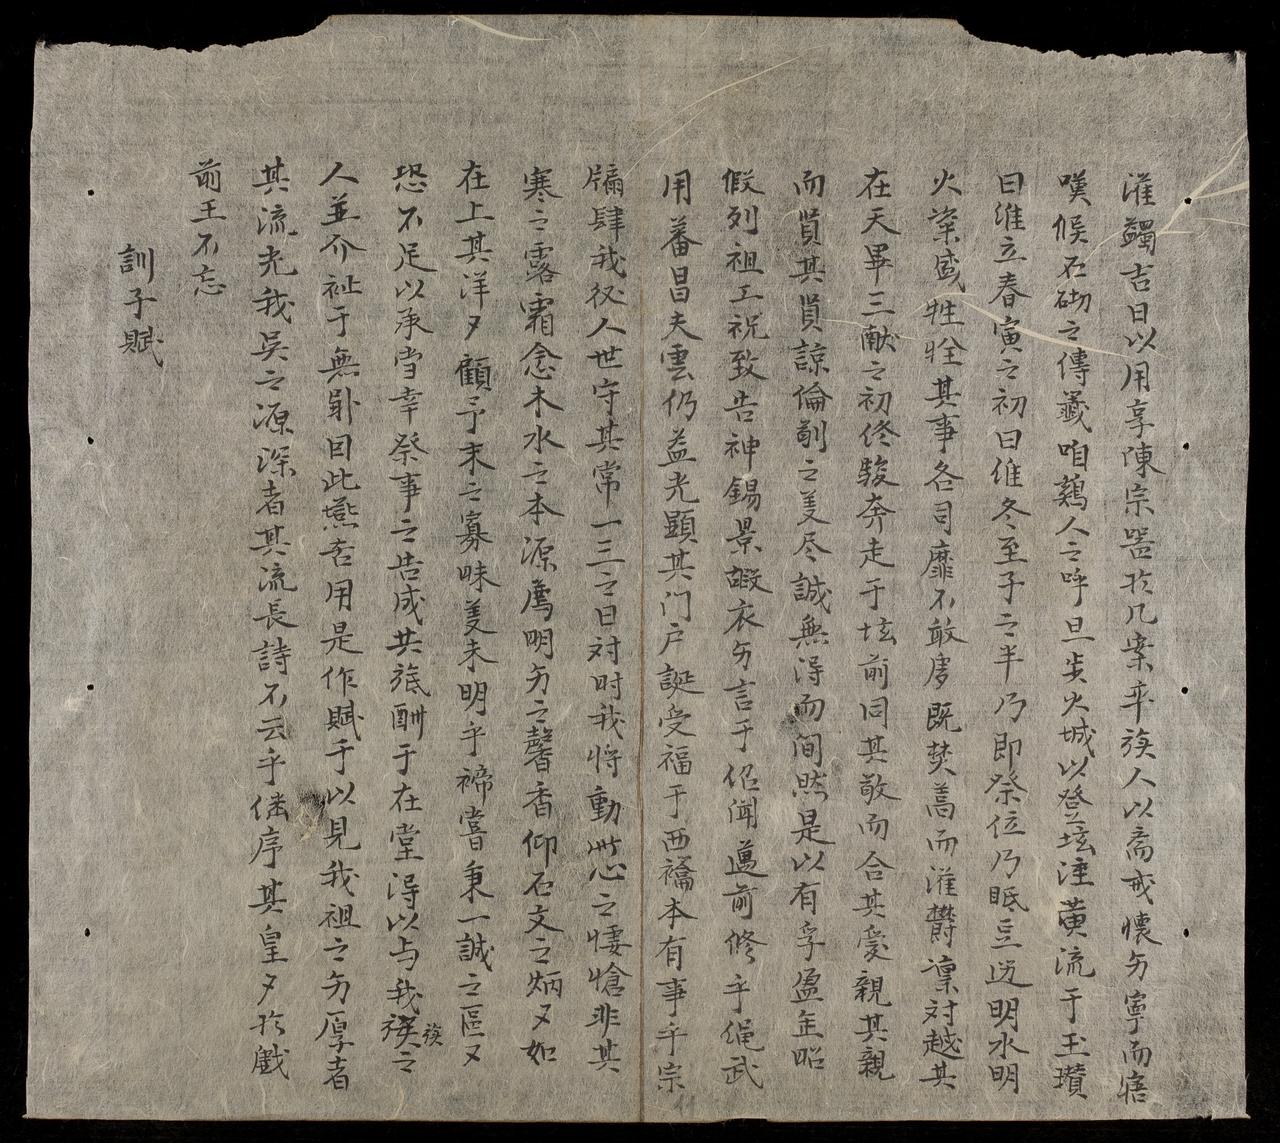 滌蠲吉日以用享陳宗器於几案率族人以齋戒懷夕寧而寤
嘆候石砌之傳籤咱鷄人之呼旦光火城以登坛湩黄流于玉瓚
曰維立春寅之初曰維冬至子之半乃即祭位乃眂豆迻明水明
火粢盛牲牷其事各司靡不敢虔既焚蒿而滌欝凜対越其
在天畢三献之初终駿奔走于坛前同其敬而合其爱親其親
而貭其貭諒倫制之美尽誠無淂而间然是以有孚盈缶昭
假列祖工祝致告神錫景嘏衣夕言于佋闻邁前修乎绳武
用蕃昌夫雲仍益光顯其门户誕受福于西禴本有事乎宗
牖肆我後人世守其常一三之日対时我将動𡮢心之悽愴非其
寒之露霜念木水之本源薦明夕之馨香仰石文之炳〻如
在上其洋〻顧予末之寡昧羌未明乎褅嘗秉一誠之區〻
恐不足以承当幸祭事之告成共旅酬于在堂淂以与我族之
人並介祉于無斁因此燕吝用是作賦于以見我祖之夕厚者
其流光我吳之源深者其流長詩不云乎継序其皇〻於戯
前王不忘
訓子賦